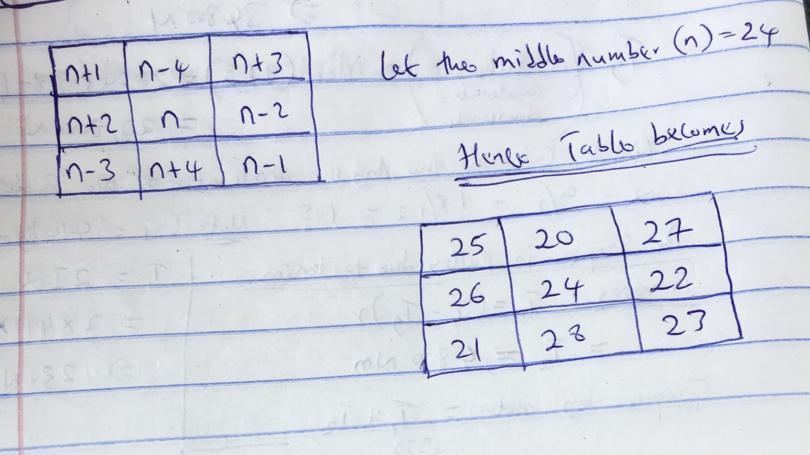 n+1 n-4 n+3
n+2 n- n-2
n-3 n+4 n-1
Let the middle number (n) = 24
Hence Table becomes
25 20 27
26 24 22
21 28 23